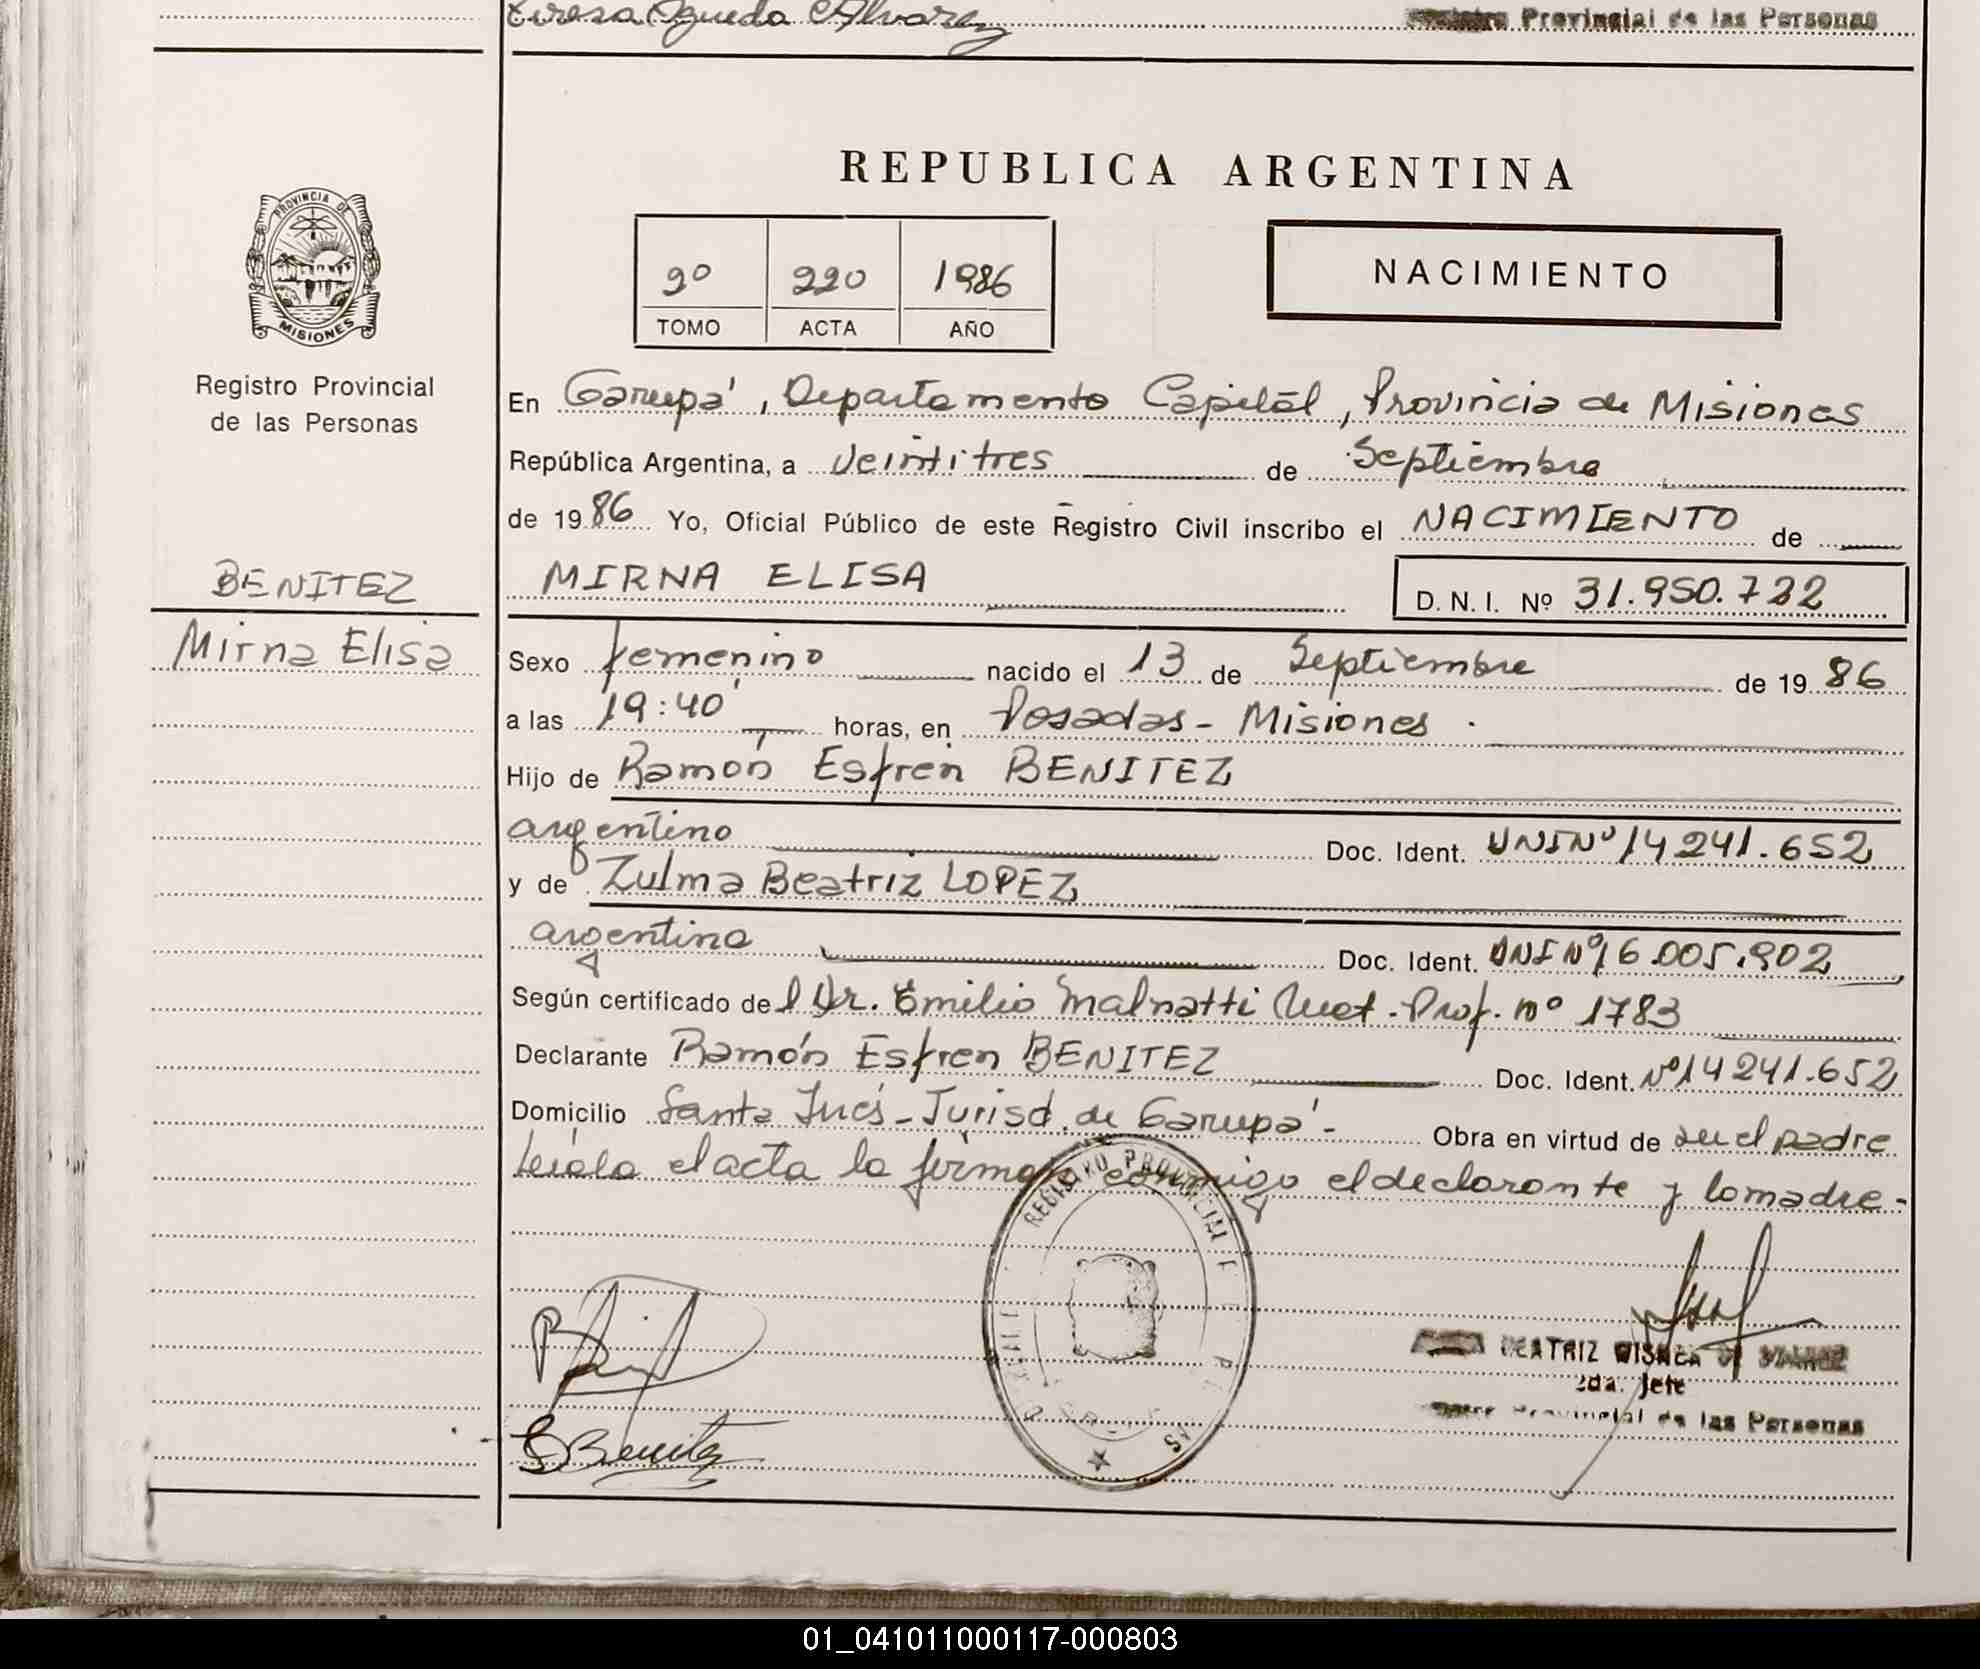 Teresa Agueda Alvarez
Registro Provincial de las Personas
REPUBLICA ARGENTINA
PROVINCIA DE
MISIONES
Registro Provincial
de las Personas
2º 220 1986
TOMO ACTA AÑO
NACIMIENTO
En Garupá, Departamento Capital, Provincia de Misiones
República Argentina, a veintitres de Septiembre
de 1986 Yo, Oficial Público de este Registro Civil inscribo el NACIMIENTO de
BENITEZ
Mirna Elisa
MIRNA ELISA
D. N. I. Nº 31.950.722
Sexo femenino nacido el 13 de Septiembre de 1986
a las 19:40 horas, en Posadas - Misiones.
Hijo de Ramón Esfren BENITEZ
argentino Doc. Ident. DNI Nº 14241.652
y de Zulma Beatriz LOPEZ
argentina Doc. Ident. DNI Nº 16.005.902
Según certificado del Dr. Emilio Malnatti Mat. Prof. nº 1783
Declarante Ramón Esfren BENITEZ Doc. Ident. Nº 14241.652
Domicilio Santa Inés - Jurisd. de Garupá - Obra en virtud de ser el padre
Leída el acta la firman conmigo el declarante y la madre -
REGISTRO PROVINCIAL
BEATRIZ
2da. Jefe
Provincial de las Personas
Benitez
01_041011000117-000803